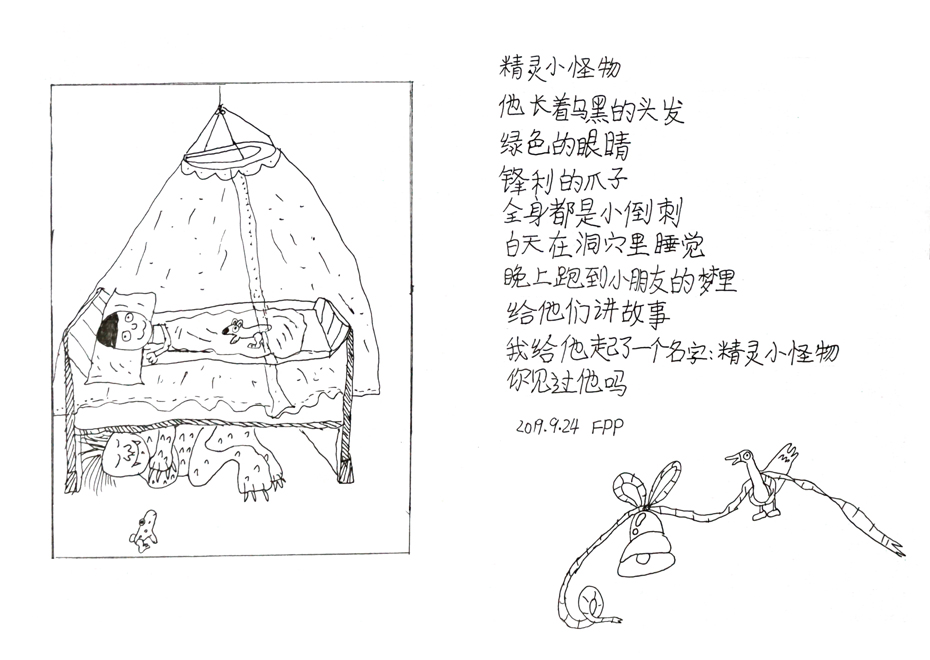 精灵小怪物
他长着乌黑的头发
绿色的眼睛
锋利的爪子
全身都是小倒刺
白天在洞穴里睡觉
晚上跑到小朋友的梦里
给他们讲故事
我给他起了一个名字:精灵小怪物
你见过他吗
2019.9.24 FPP